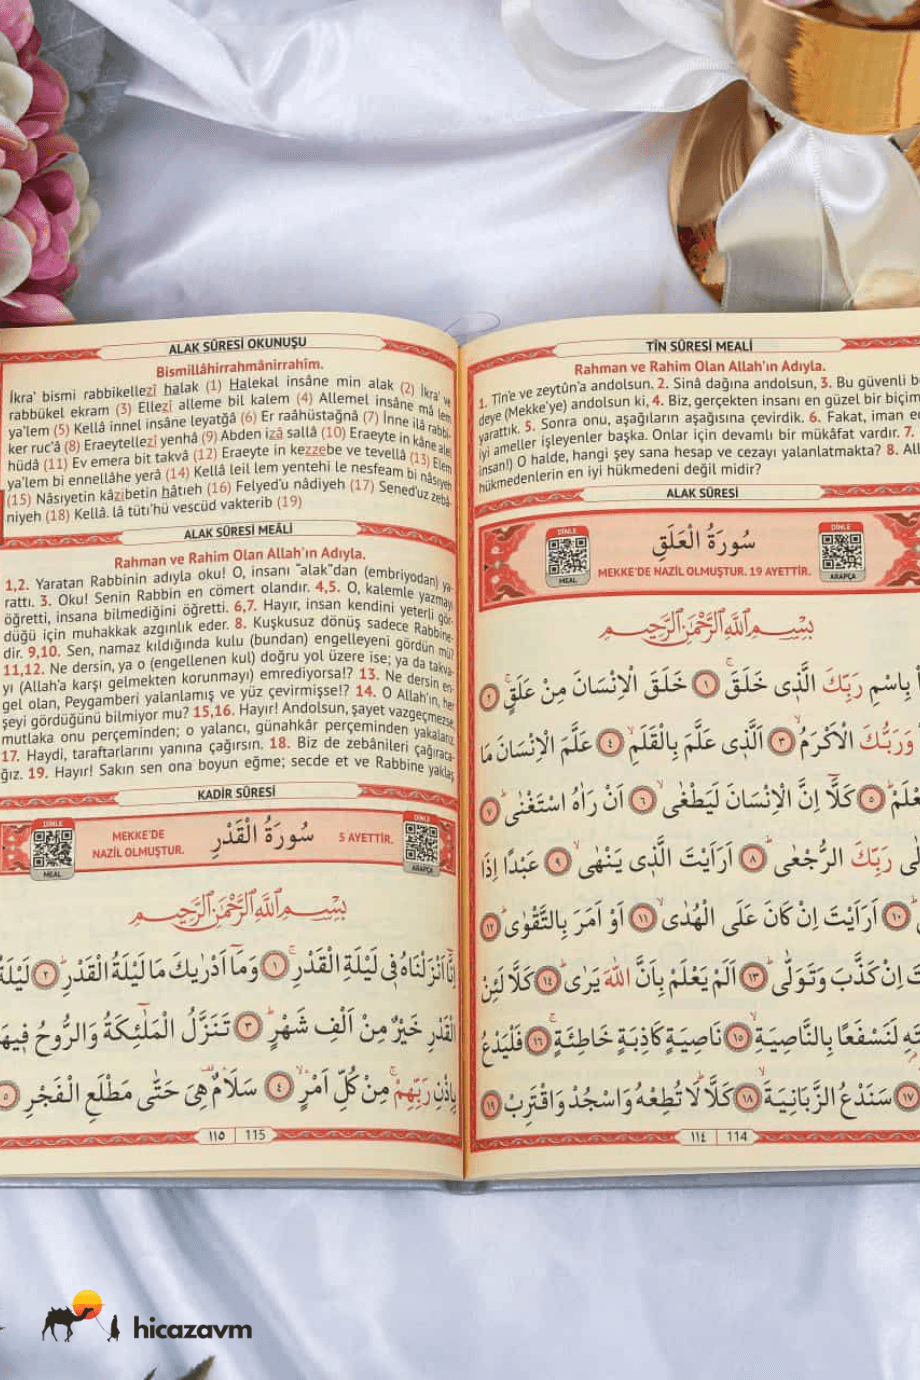 ALAK SÛRESİ OKUNUŞU
Bismillâhirrahmânirrahîm.
İkra' bismi rabbikellezî halak (1) Halekal insâne min alak (2) İkra' ve
rabbükel ekram (3) Ellezî alleme bil kalem (4) Allemel insâne mâ lem
ya'lem (5) Kellâ innel insâne leyatğâ (6) Er raâhüstağnâ (7) İnne ilâ rabbi-
ker ruc'â (8) Eraeytellezî yenhâ (9) Abden izâ sallâ (10) Eraeyte in kâne alel
hüdâ (11) Ev emera bit takvâ (12) Eraeyte in kezzebe ve tevellâ (13) Elem
ya'lem bi ennellâhe yerâ (14) Kellâ leil lem yentehi le nesfeam bi nâsıyeh
(15) Nâsıyetin kâzibetin hâtıeh (16) Felyed'u nâdiyeh (17) Sened'uz zebâ-
niyeh (18) Kellâ. lâ tütı'hü vescüd vakterib (19)
ALAK SÛRESİ MEÂLİ
Rahman ve Rahim Olan Allah'ın Adıyla.
1,2. Yaratan Rabbinin adıyla oku! O, insanı "alak"dan (embriyodan) ya-
rattı. 3. Oku! Senin Rabbin en cömert olandır. 4,5. O, kalemle yazmayı
öğretti, insana bilmediğini öğretti. 6,7. Hayır, insan kendini yeterli gör-
düğü için muhakkak azgınlık eder. 8. Kuşkusuz dönüş sadece Rabbine-
dir. 9,10. Sen, namaz kıldığında kulu (bundan) engelleyeni gördün mü?
11,12. Ne dersin, ya o (engellenen kul) doğru yol üzere ise; ya da takva-
yı (Allah'a karşı gelmekten korunmayı) emrediyorsa!? 13. Ne dersin en-
gel olan, Peygamberi yalanlamış ve yüz çevirmişse!? 14. O Allah'ın, her
şeyi gördüğünü bilmiyor mu? 15,16. Hayır! Andolsun, şayet vazgeçmezse,
mutlaka onu perçeminden; o yalancı, günahkâr perçeminden yakalarız.
17. Haydi, taraftarlarını yanına çağırsın. 18. Biz de zebânileri çağıraca-
ğız. 19. Hayır! Sakın sen ona boyun eğme; secde et ve Rabbine yaklaş
KADİR SÛRESİ
DİNLE
MEAL
MEKKE'DE
NAZİL OLMUŞTUR.
سُورَةُ الْقَدْرِ
5 AYETTİR.
DİNLE
ARAPÇA
بِسْمِ اللّٰهِ الرَّحْمٰنِ الرَّحِيمِ
اِنَّٓا اَنْزَلْنَاهُ فِي لَيْلَةِ الْقَدْرِۚ ١ وَمَٓا اَدْرٰيكَ مَا لَيْلَةُ الْقَدْرِۜ ٢ لَيْلَةُ
الْقَدْرِ خَيْرٌ مِنْ اَلْفِ شَهْرٍۜ ٣ تَنَزَّلُ الْمَلٰٓئِكَةُ وَالرُّوحُ فِيهَا
بِاِذْنِ رَبِّهِمْۚ مِنْ كُلِّ اَمْرٍۙ ٤ سَلَامٌ۠ هِيَ حَتّٰى مَطْلَعِ الْفَجْرِ ٥
١١٥ | 115
TÎN SÛRESİ MEALİ
Rahman ve Rahim Olan Allah'ın Adıyla.
1. Tîn'e ve zeytûn'a andolsun. 2. Sinâ dağına andolsun, 3. Bu güvenli be
deye (Mekke'ye) andolsun ki, 4. Biz, gerçekten insanı en güzel bir biçim
yarattık. 5. Sonra onu, aşağıların aşağısına çevirdik. 6. Fakat, iman e
iyi ameller işleyenler başka. Onlar için devamlı bir mükâfat vardır. 7.
insan!) O halde, hangi şey sana hesap ve cezayı yalanlatmakta? 8. All
hükmedenlerin en iyi hükmedeni değil midir?
ALAK SÛRESİ
DİNLE
MEAL
سُورَةُ الْعَلَقِ
MEKKE'DE NAZİL OLMUŞTUR. 19 AYETTİR.
DİNLE
ARAPÇA
بِسْمِ اللّٰهِ الرَّحْمٰنِ الرَّحِيمِ
بِاسْمِ رَبِّكَ الَّذِي خَلَقَۚ ١ خَلَقَ الْاِنْسَانَ مِنْ عَلَقٍۚ ٢
وَرَبُّكَ الْاَكْرَمُۙ ٣ اَلَّذِي عَلَّمَ بِالْقَلَمِۙ ٤ عَلَّمَ الْاِنْسَانَ مَا
يَعْلَمْۜ ٥ كَلَّٓا اِنَّ الْاِنْسَانَ لَيَطْغٰىۙ ٦ اَنْ رَاٰهُ اسْتَغْنٰىۜ ٧
لٰى رَبِّكَ الرُّجْعٰىۜ ٨ اَرَاَيْتَ الَّذِي يَنْهٰىۙ ٩ عَبْدًا اِذَا
١٠ اَرَاَيْتَ اِنْ كَانَ عَلَى الْهُدٰىۙ ١١ اَوْ اَمَرَ بِالتَّقْوٰىۜ ١٢
تَ اِنْ كَذَّبَ وَتَوَلّٰىۜ ١٣ اَلَمْ يَعْلَمْ بِاَنَّ اللّٰهَ يَرٰىۜ ١٤ كَلَّا لَئِنْ
تَهِ لَنَسْفَعًا بِالنَّاصِيَةِۙ ١٥ نَاصِيَةٍ كَاذِبَةٍ خَاطِئَةٍۚ ١٦ فَلْيَدْعُ
١٧ سَنَدْعُ الزَّبَانِيَةَۙ ١٨ كَلَّاۜ لَا تُطِعْهُ وَاسْجُدْ وَاقْتَرِبْ ١٩
١١٤ | 114
hicazavm